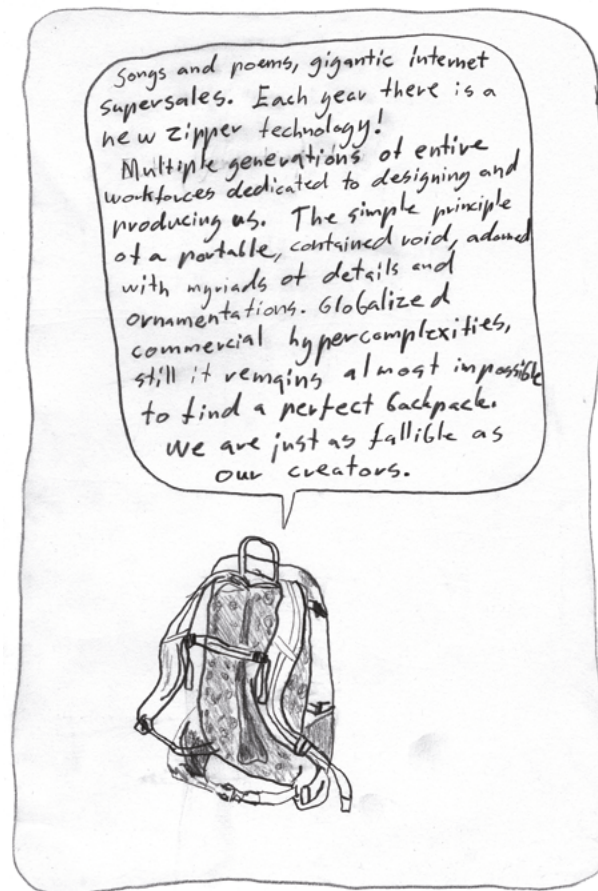 Songs and poems, gigantic internet
supersales. Each year there is a
new zipper technology!
Multiple generations of entire
workforces dedicated to designing and
producing us. The simple principle
of a portable, contained void, adorned
with myriads of details and
ornamentations. Globalized
commercial hypercomplexities,
still it remains almost impossible
to find a perfect backpack.
We are just as fallible as
our creators.